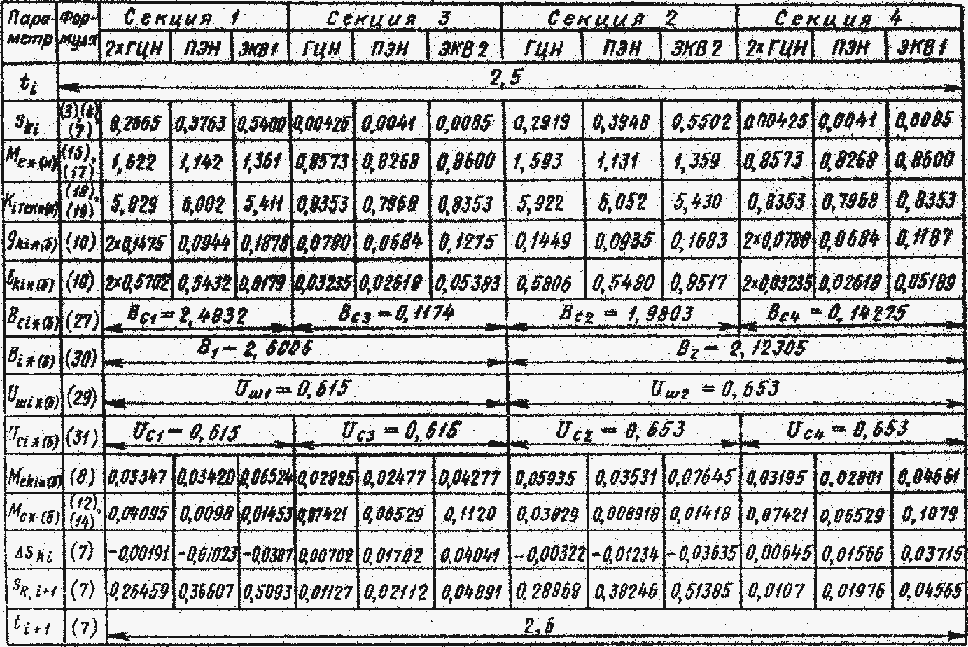 Пара- Фор- Секция 1 Секция 3 Секция 2 Секция 4
метр мула 2хГЦН ПЭН ЭКВ1 ГЦН ПЭН ЭКВ2 ГЦН ПЭН ЭКВ2 2хГЦН ПЭН ЭКВ1
t i 2,5
S ki (7) 0,3763 0,5400 0,00425 0,0041 0,0085 0,2919 0,3948 0,5502 0,00425 0,0041 0,0085
(15), (17) 1,622 1,142 1,361 0,8573 0,8268 0,8600 1,593 1,131 1,359 0,8573 0,8268 0,8600
(18), (19) 5,829 6,002 5,411 0,8353 0,7968 0,8353 5,922 6,052 5,430 0,8353 0,7968 0,8353
(10) 2х0,1475 0,0944 0,1878 0,0780 0,0684 0,1275 0,1449 0,0935 0,1683 2х0,0780 0,0684 0,1187
(10) 2х0,5702 0,5432 0,03235 0,02618 0,05383 0,5806 0,5490 0,8517 2х0,03235 0,02618 0,05189
B ci я(б) (27) B c1 = 2,4832 B c3 = 0,1174 B c2 = 1,9803 B c4 = 0,14225
B i я(б) (30) B 1 = 2,6006 B 2 = 2,12305
U шi я(б) (29) U ш1 = 0,615 U ш2 = 0,653
U ci я(б) (31) U c1 = 0,615 U c3 = 0,615 U c2 = 0,653 U c4 = 0,653
(8) 0,03347 0,03420 0,06524 0,02925 0,02477 0,04277 0,05935 0,03531 0,07645 0,03195 0,02801 0,04661
M сх (б) (12), (14) 0,04095 0,0098 0,01453 0,07421 0,06529 0,1120 0,03829 0,008918 0,01418 0,07421 0,06529 0,1079
ΔS ki (7) -0,00191 -0,01023 -0,0307 0,00702 0,01702 0,04041 -0,00322 -0,01234 -0,03635 0,00645 0,01566 0,03715
S k, i+1 (7) 0,26459 0,36607 0,5093 0,01127 0,02112 0,04891 0,28868 0,38246 0,51385 0,0107 0,01976 0,04565
t i+1 (7) 2,6